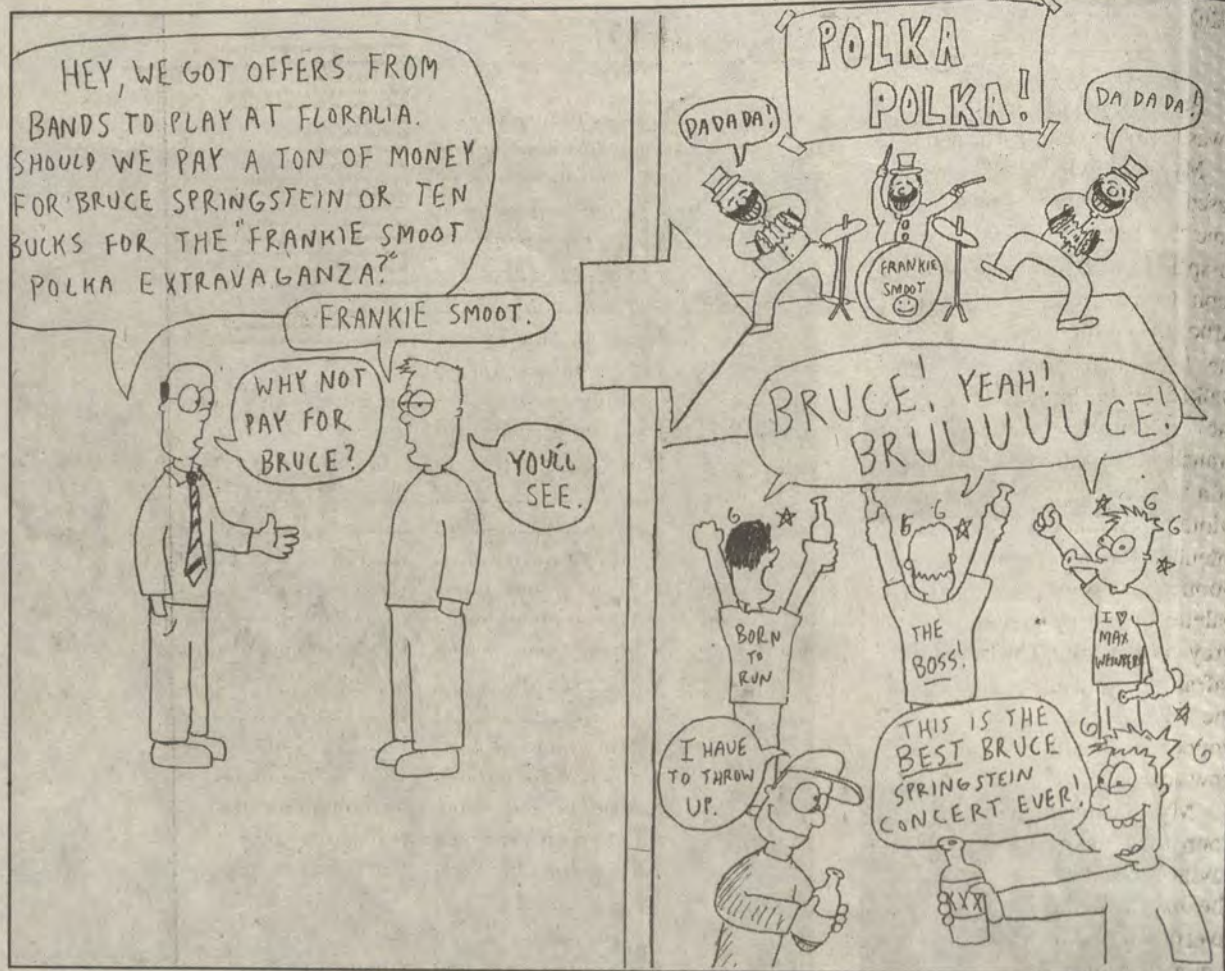 HEY, WE GOT OFFERS FROM
BANDS TO PLAY AT FLORALIA.
SHOULD WE PAY A TON OF MONEY
FOR BRUCE SPRINGSTEIN OR TEN
BUCKS FOR THE "FRANKIE SMOOT
POLKA EXTRAVAGANZA?"
FRANKIE SMOOT.
WHY NOT
PAY FOR
BRUCE?
YOU'LL
SEE.
POLKA
POLKA!
DA DA DA!
DA DA DA!
FRANKIE
SMOOT
BRUCE! YEAH!
BRUUUUUUCE!
BORN
TO
RUN
THE
BOSS!
I ♥
MAX
I HAVE
TO THROW
UP.
THIS IS THE
BEST BRUCE
SPRINGSTEIN
CONCERT EVER!
XXX